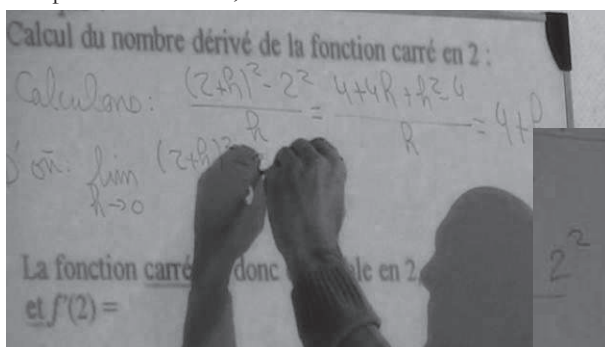 Calcul du nombre dérivé de la fonction carré en 2 :
Calculons : (2+h)²-2² / h = 4+4h+h²-4 / h = 4+h
D'où : lim h→0 (2+h)²
La fonction carré donc en 2
et f'(2) =
2²